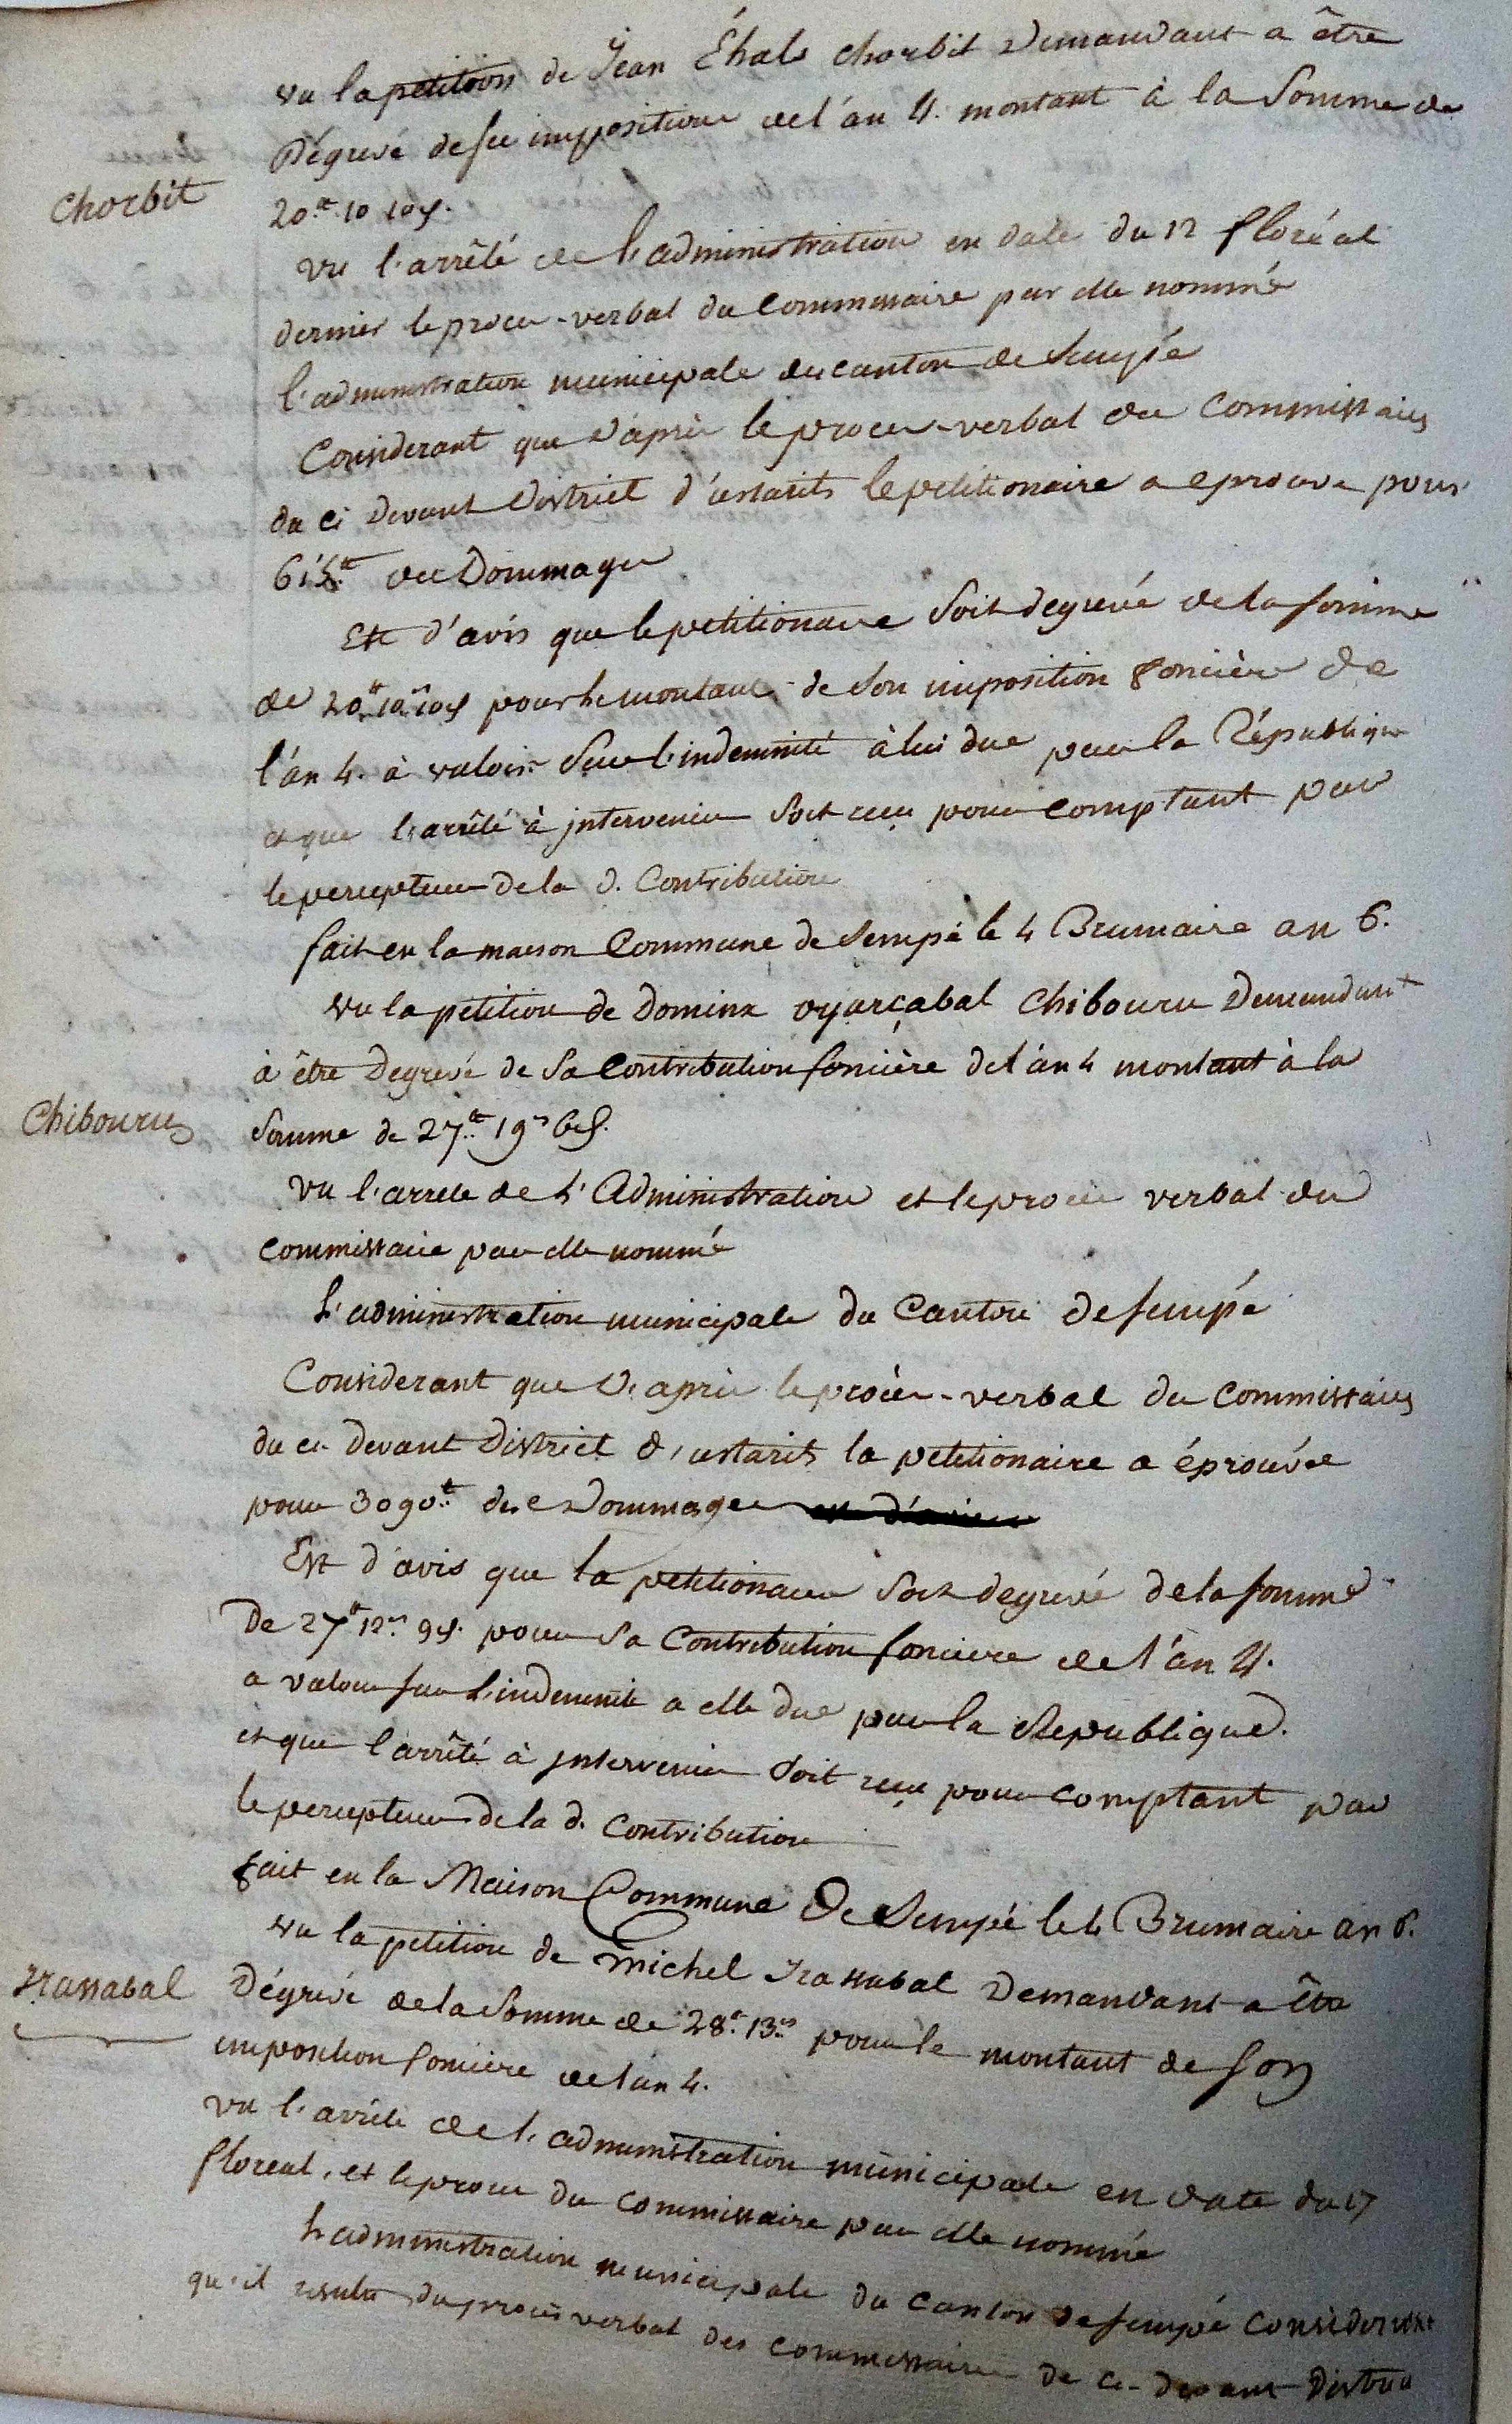 vu la petition de Jean Éhals chorbit Demandant a être
Dégrevé de ses impositions de l'an 4. montant à la Somme de
Chorbit
20.tt 10 10d.
vu l'arrêté de l'administration en date du 12 floréal
dernier le proces-verbal du Commissaire par elle nommé
l'administration municipale du canton de Sempé
Considerant que d'après le proces-verbal des Commissaires
du ci Devant District d'ustarits le petitionaire a eprouvé pour
615.tt de Dommages
Est d'avis que le petitionaire Soit degrevé de la Somme
de 20tt 10s 10d pour le montant de Son imposition fonciére de
l'an 4. à valoir Sur l'indemnité à lui due par la République
et que l'arrêté à jntervenir Soit reçu pour comptant par
le percepteur de la d. Contribution
fait en la maison Commune de Sempé le 4 Brumaire an 6.
vu la pétition de Dominx oyarçabal Chibouru Demandant
à être Degrevé de Sa Contribution foncière de l'an 4 montant à la
Chibouru
Somme de 27.tt 19s 6d.
vu l'arrete de L'Administration et le proces verbal du
Commissaire par elle nommé
L'administration municipale du Canton de Sempé
Considerant que d'après le procès-verbal des Commissaires
du ci Devant District d'ustarits la petitionaire a éprouvée
pour 3090.tt de Dommages
Est d'avis que la petitionaire Soit degrevé de la Somme
De 27tt 12s 9d. pour Sa Contribution fonciere de l'an 4.
a valoir Sur L'indemnité a elle due par la Republique.
et que l'arrêté à jntervenir Soit reçu pour comptant par
le percepteur de la d. Contribution
fait en la Maison Commune De Sempé le 4 Brumaire an 6.
vu la petition de Michel Irassabal Demandant a être
Irassabal
Dégrévé de la Somme de 28tt. 13s pour le montant de Son
imposition fonciere de l'an 4.
vu l'arrêté de l'administration municipale en date du 17
floreal, et le proces du Commissaire par elle nommé
L'administration municipale du Canton de Sempé Considerant
qu'il resulte du procès verbal des Commissaires de ci-devant District